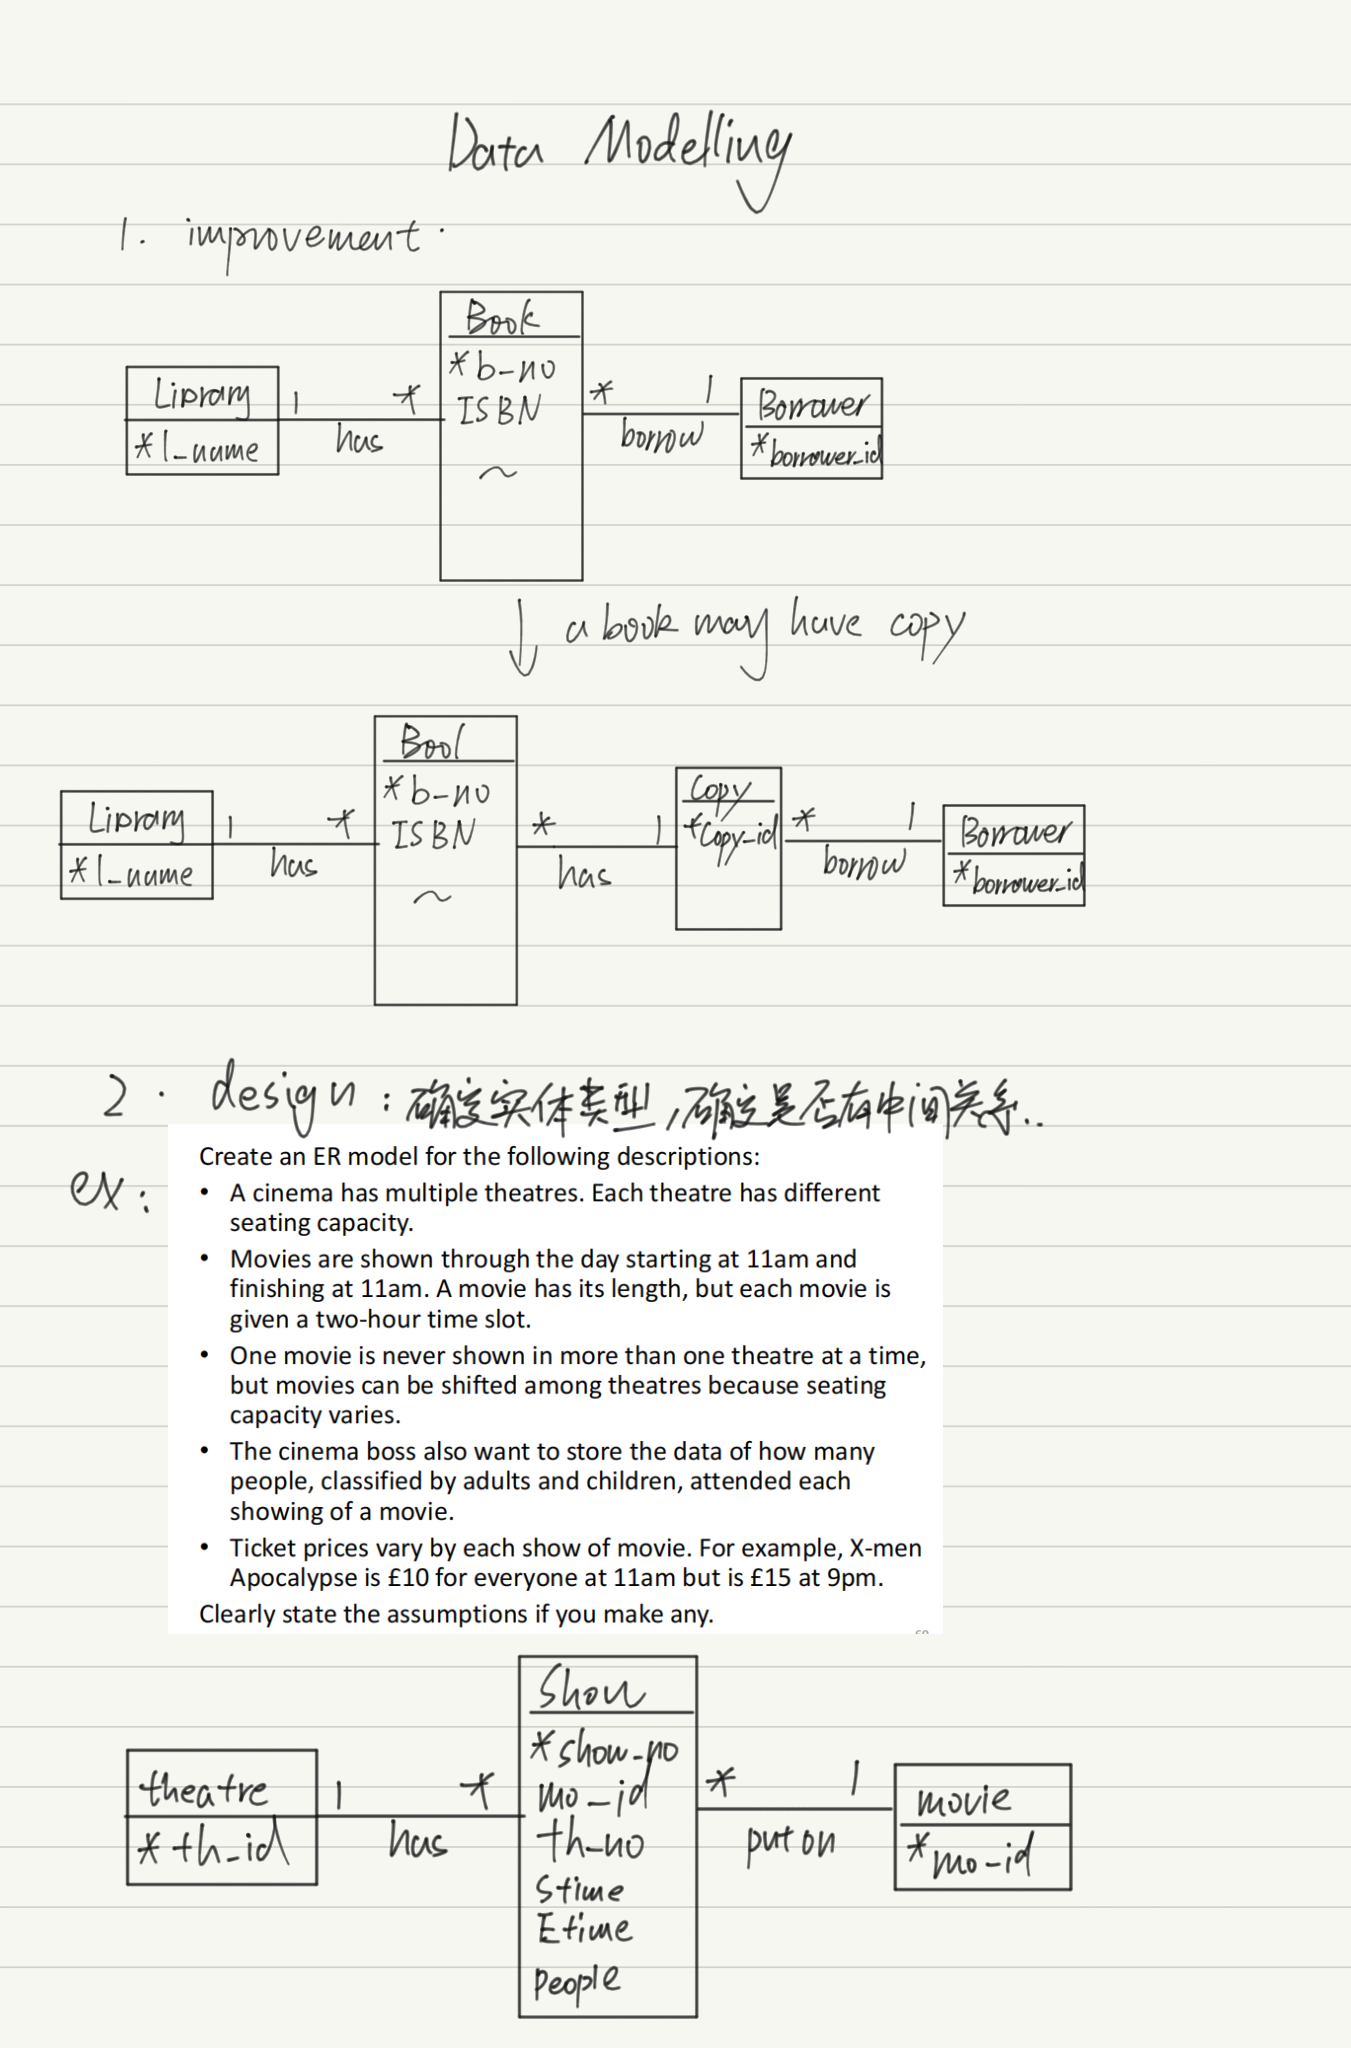 Data Modelling
1. improvement.
Book
*b-no
ISBN
~
Library
*l_name
1
*
has
*
1
borrow
Borrower
*borrower_id
↓ a book may have copy
Bool
*b-no
ISBN
~
Library
*l_name
1
*
has
*
1
has
Copy
*Copy-id
*
1
borrow
Borrower
*borrower_id
2. design: 确定实体类型,确定是否有中间关系..
ex:
Create an ER model for the following descriptions:
• A cinema has multiple theatres. Each theatre has different
seating capacity.
• Movies are shown through the day starting at 11am and
finishing at 11am. A movie has its length, but each movie is
given a two-hour time slot.
• One movie is never shown in more than one theatre at a time,
but movies can be shifted among theatres because seating
capacity varies.
• The cinema boss also want to store the data of how many
people, classified by adults and children, attended each
showing of a movie.
• Ticket prices vary by each show of movie. For example, X-men
Apocalypse is £10 for everyone at 11am but is £15 at 9pm.
Clearly state the assumptions if you make any.
Show
*show-no
mo-id
th-no
Stime
Etime
People
theatre
*th-id
1
*
has
*
1
put on
movie
*mo-id